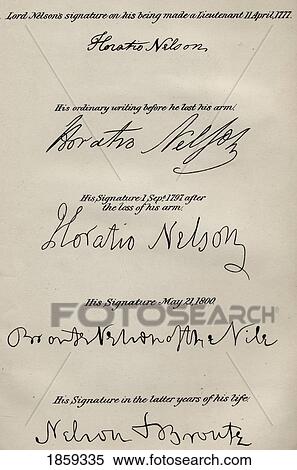 Lord Nelson's signature on his being made a Lieutenant 11 April, 1777.
Horatio Nelson
His ordinary writing before he lost his arm.
Horatio Nelson
His Signature 1 Sept. 1797 after
the loss of his arm.
Horatio Nelson
FOTOSEARCH
His Signature May 21, 1800.
Bronte Nelson of the Nile
His Signature in the latter years of his life.
Nelson & Bronte
1859335 www.fotosearch.com